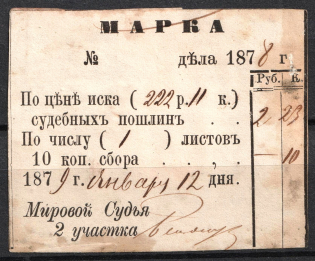 МАРКА
№ дѣла 1878 г.
Руб. К.
По цѣнѣ иска ( 222 р. 11 к.)
судебныхъ пошлинъ . 2 23
По числу ( 1 ) листовъ
10 коп. сбора . , . — 10
1879 г. Января 12 дня.
Мировой Судья
2 участка